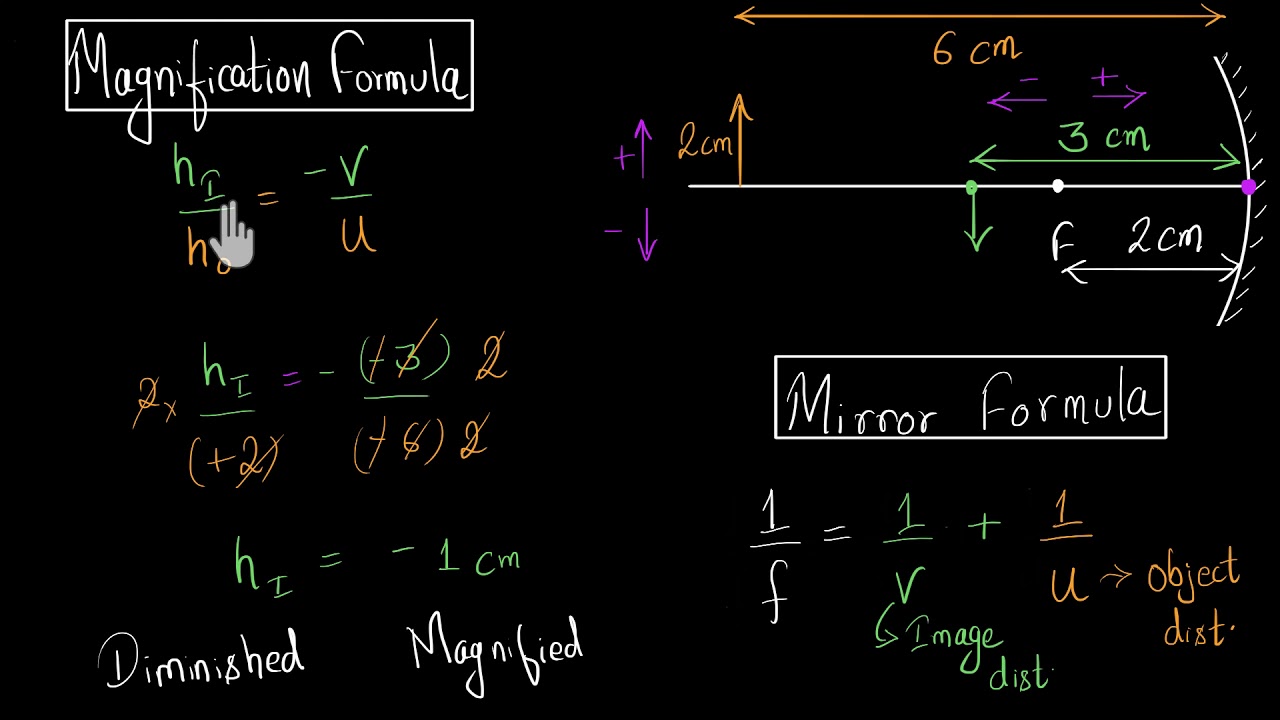 Magnification Formula
h_I / h_o = -v / u
2 × h_I / (+2) = - (-3) / (-6) 2 2
h_I = -1 cm
Diminished Magnified
6 cm
- +
3 cm
+ 2cm
-
F 2cm
Mirror Formula
1/f = 1/v + 1/u
→ object dist.
↳ Image dist.